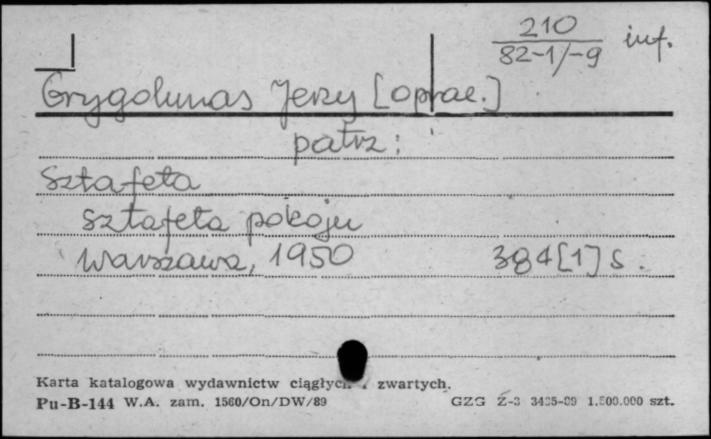 210 inf.
82-1/-9
Grygolunas Jerzy [oprac.]
patrz:
Sztafeta
Sztafeta pokoju
Warszawa, 1950 384[1] s.
Karta katalogowa wydawnictw ciągłych i zwartych.
Pu-B-144 W.A. zam. 1560/On/DW/89 GZG Z-3 3435-89 1.500.000 szt.